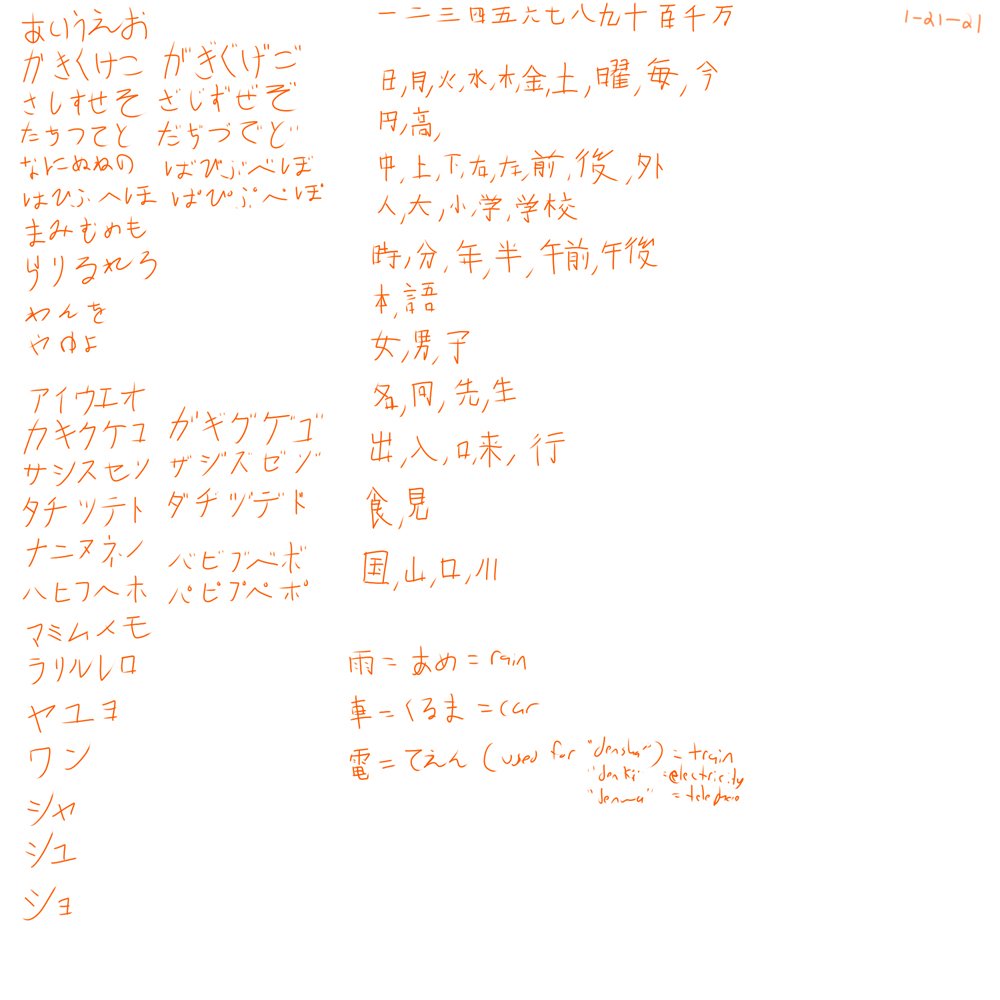 あいうえお
がきくけこ がぎぐげご
さしすせそ ざじずぜぞ
たちつてと だぢづでど
なにぬねの ばびぶべぼ
はひふへほ ぱぴぷぺぽ
まみむめも
らりるれろ
わんを
やゆよ
アイウエオ
カキクケコ ガギグゲゴ
サシスセソ ザジズゼゾ
タチツテト ダヂヅデド
ナニヌネノ バビブベボ
ハヒフヘホ パピプペポ
マミムメモ
ラリルレロ
ヤユヨ
ワン
シャ
シュ
ショ
一二三四五六七八九十百千万
日,月,火,水,木,金,土,曜,毎,今
円,高,
中,上,下,右,左,前,後,外
人,大,小,学,学校
時,分,年,半,午前,午後
本,語
女,男,子
名,何,先,生
出,入,口,来,行
食,見
国,山,口,川
雨=あめ=rain
車=くるま=car
電=てえん (used for "densha")=train
"denki" =electricity
"denwa" =telephone
1-21-21